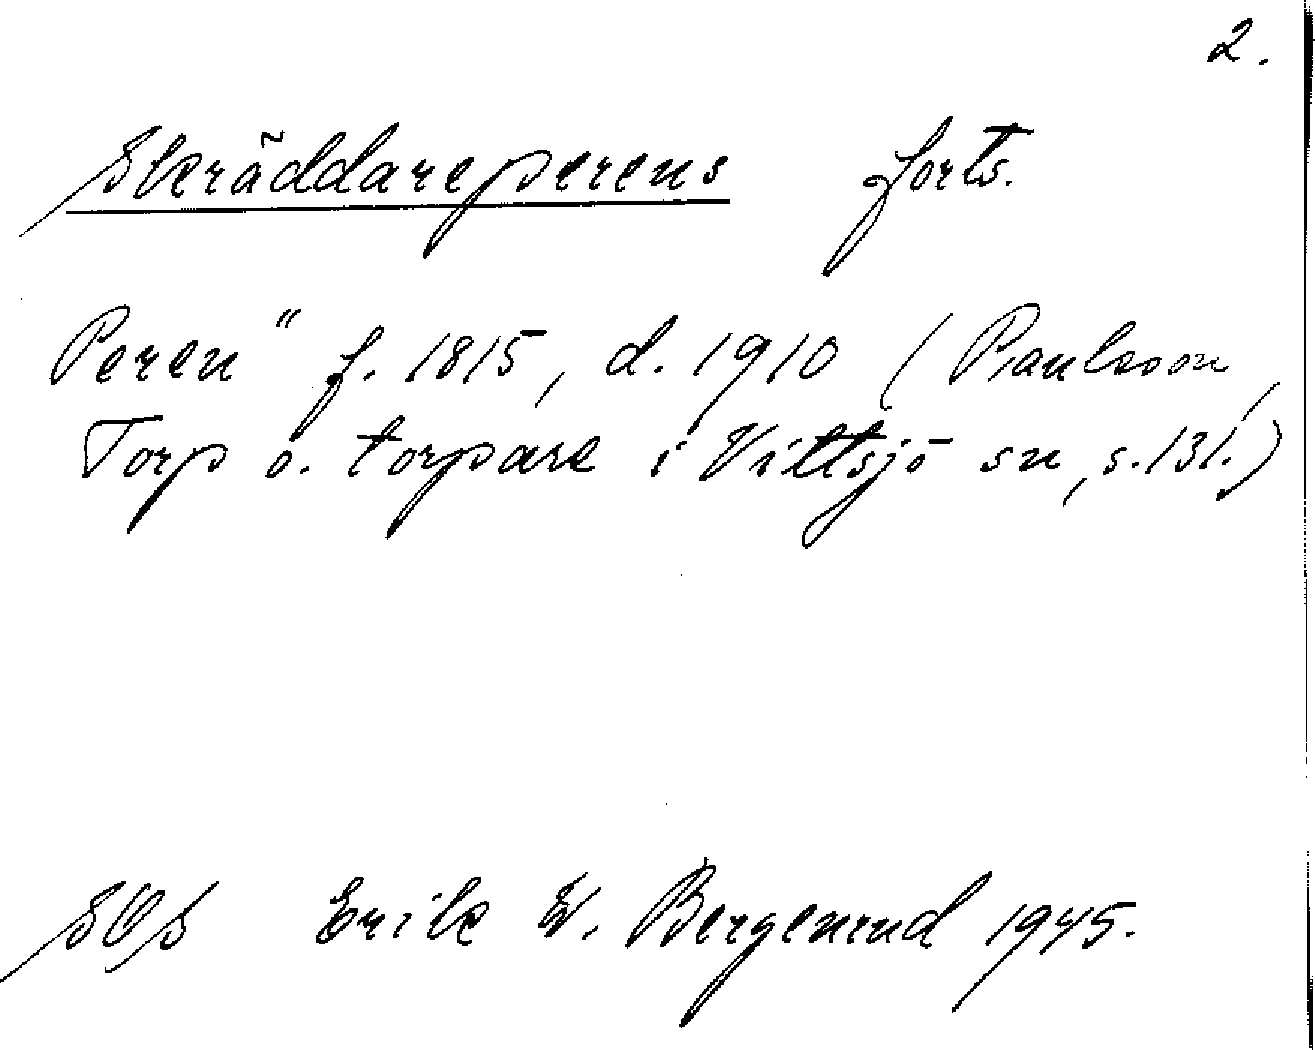 2.
Skräddareperens forts.
Peren" f. 1815, d. 1910 (Paulsson,
Torp o. torpare i Vittsjö sn, s. 131.)
SOS Erik W. Bergenrud 1945.